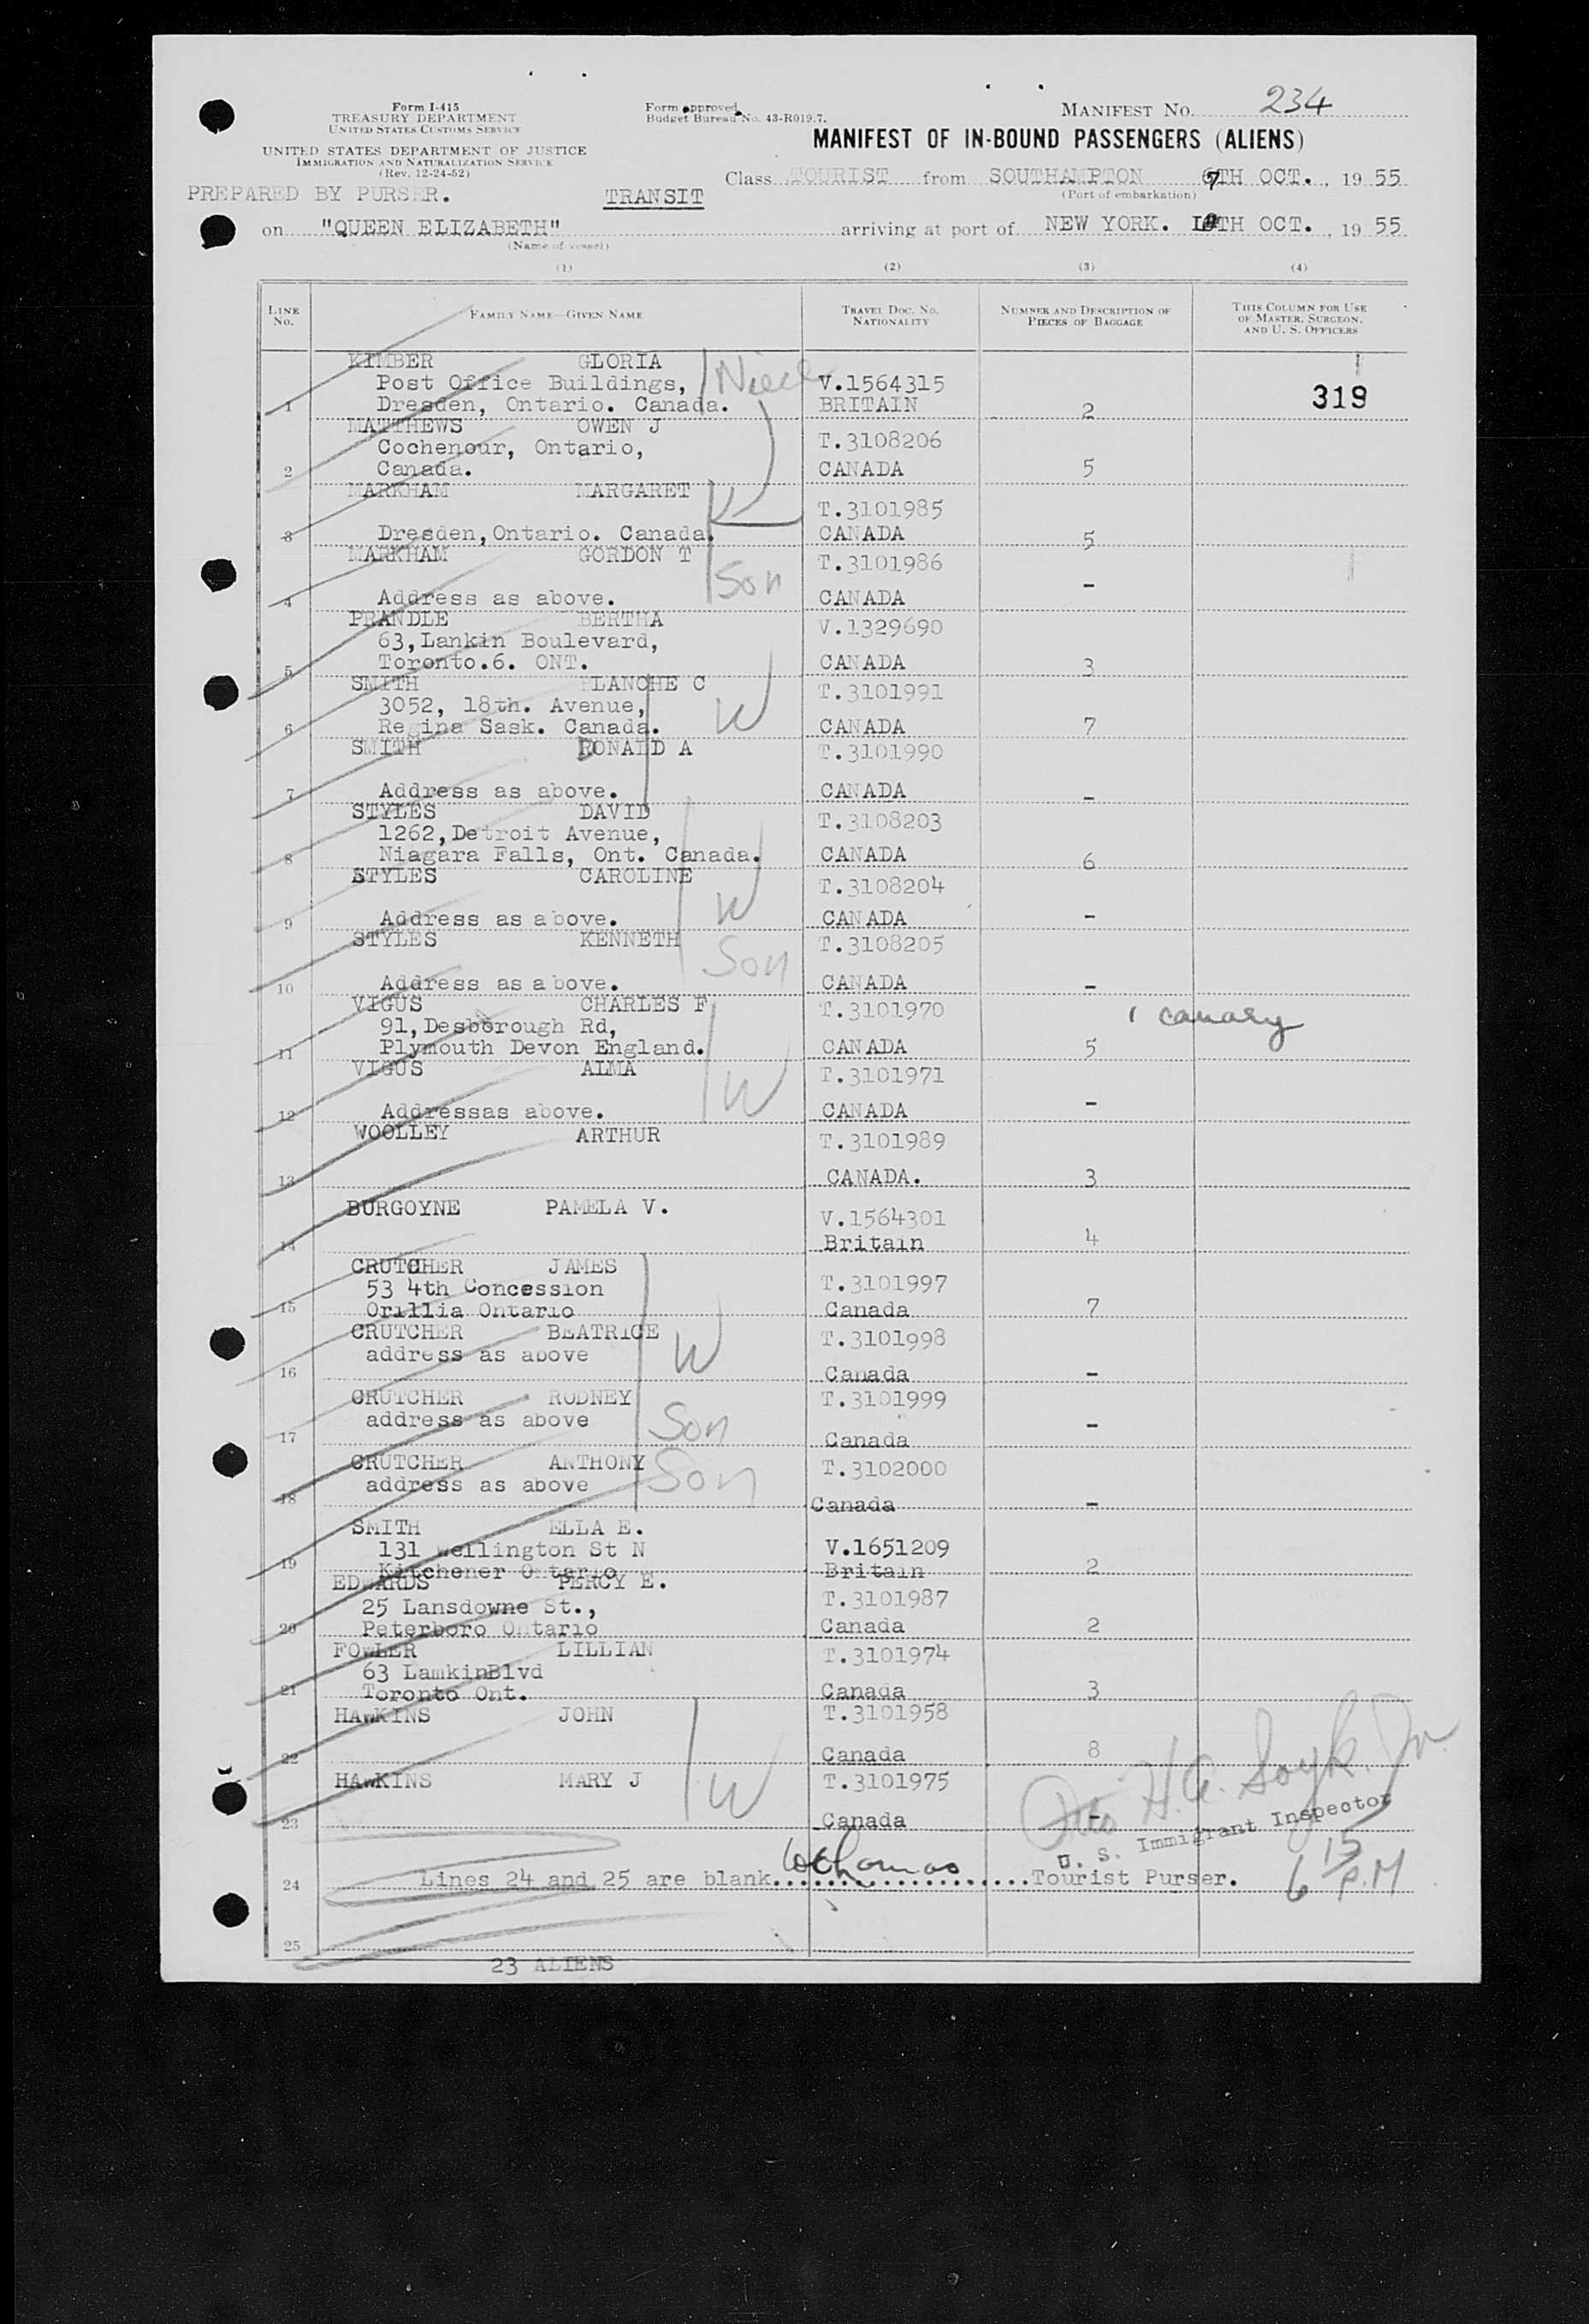 Form I-415
TREASURY DEPARTMENT
UNITED STATES CUSTOMS SERVICE
UNITED STATES DEPARTMENT OF JUSTICE
IMMIGRATION AND NATURALIZATION SERVICE
(Rev. 12-24-52)
Form approved
Budget Bureau No. 43-R019.7.
MANIFEST NO. 234
MANIFEST OF IN-BOUND PASSENGERS (ALIENS)
PREPARED BY PURSER. TRANSIT
Class TOURIST from SOUTHAMPTON 7TH OCT., 19 55
(Port of embarkation)
on "QUEEN ELIZABETH" arriving at port of NEW YORK. TH OCT., 19 55
(Name of vessel)
(1) (2) (3) (4)
LINE No. FAMILY NAME—GIVEN NAME TRAVEL DOC. NO. NATIONALITY NUMBER AND DESCRIPTION OF PIECES OF BAGGAGE THIS COLUMN FOR USE OF MASTER, SURGEON, AND U. S. OFFICERS
KIMBER GLORIA
Post Office Buildings, Niece V.1564315
1 Dresden, Ontario. Canada. BRITAIN 2 319
MATTHEWS OWEN J
Cochenour, Ontario, T.3108206
2 Canada. CANADA 5
MARKHAM MARGARET
T.3101985
3 Dresden,Ontario. Canada. CANADA 5
MARKHAM GORDON T T.3101986
Son -
4 Address as above. CANADA
PRANDLE BERTHA V.1329690
63,Lankin Boulevard,
5 Toronto.6. ONT. CANADA 3
SMITH BLANCHE C T.3101991
3052, 18th. Avenue, W
6 Regina Sask. Canada. CANADA 7
SMITH RONALD A T.3101990
7 Address as above. CANADA -
STYLES DAVID T.3108203
1262,Detroit Avenue,
8 Niagara Falls, Ont. Canada. CANADA 6
STYLES CAROLINE T.3108204
W
9 Address as above. CANADA -
STYLES KENNETH T.3108205
Son
10 Address as above. CANADA -
VIGUS CHARLES F T.3101970 1 canary
91,Desborough Rd,
11 Plymouth Devon England. CANADA 5
VIGUS ALMA T.3101971
W
12 Addressas above. CANADA -
WOOLLEY ARTHUR T.3101989
13 CANADA. 3
BURGOYNE PAMELA V. V.1564301
14 Britain 4
CRUTCHER JAMES
53 4th Concession T.3101997
15 Orillia Ontario Canada 7
CRUTCHER BEATRICE T.3101998
address as above W
16 Canada -
CRUTCHER RODNEY T.3101999
address as above Son
17 Canada -
CRUTCHER ANTHONY T.3102000
address as above Son
18 Canada -
SMITH ELLA E.
131 Wellington St N V.1651209
19 Kitchener Ontario Britain 2
EDWARDS PERCY E.
25 Lansdowne St., T.3101987
20 Peterboro Ontario Canada 2
FOWLER LILLIAN T.3101974
63 LamkinBlvd
21 Toronto Ont. Canada 3
HAWKINS JOHN T.3101958
22 Canada 8
HAWKINS MARY J T.3101975
W
23 Canada -
U. S. Immigrant Inspector
24 Lines 24 and 25 are blank....................Tourist Purser. 6 15 P.M
25
23 ALIENS